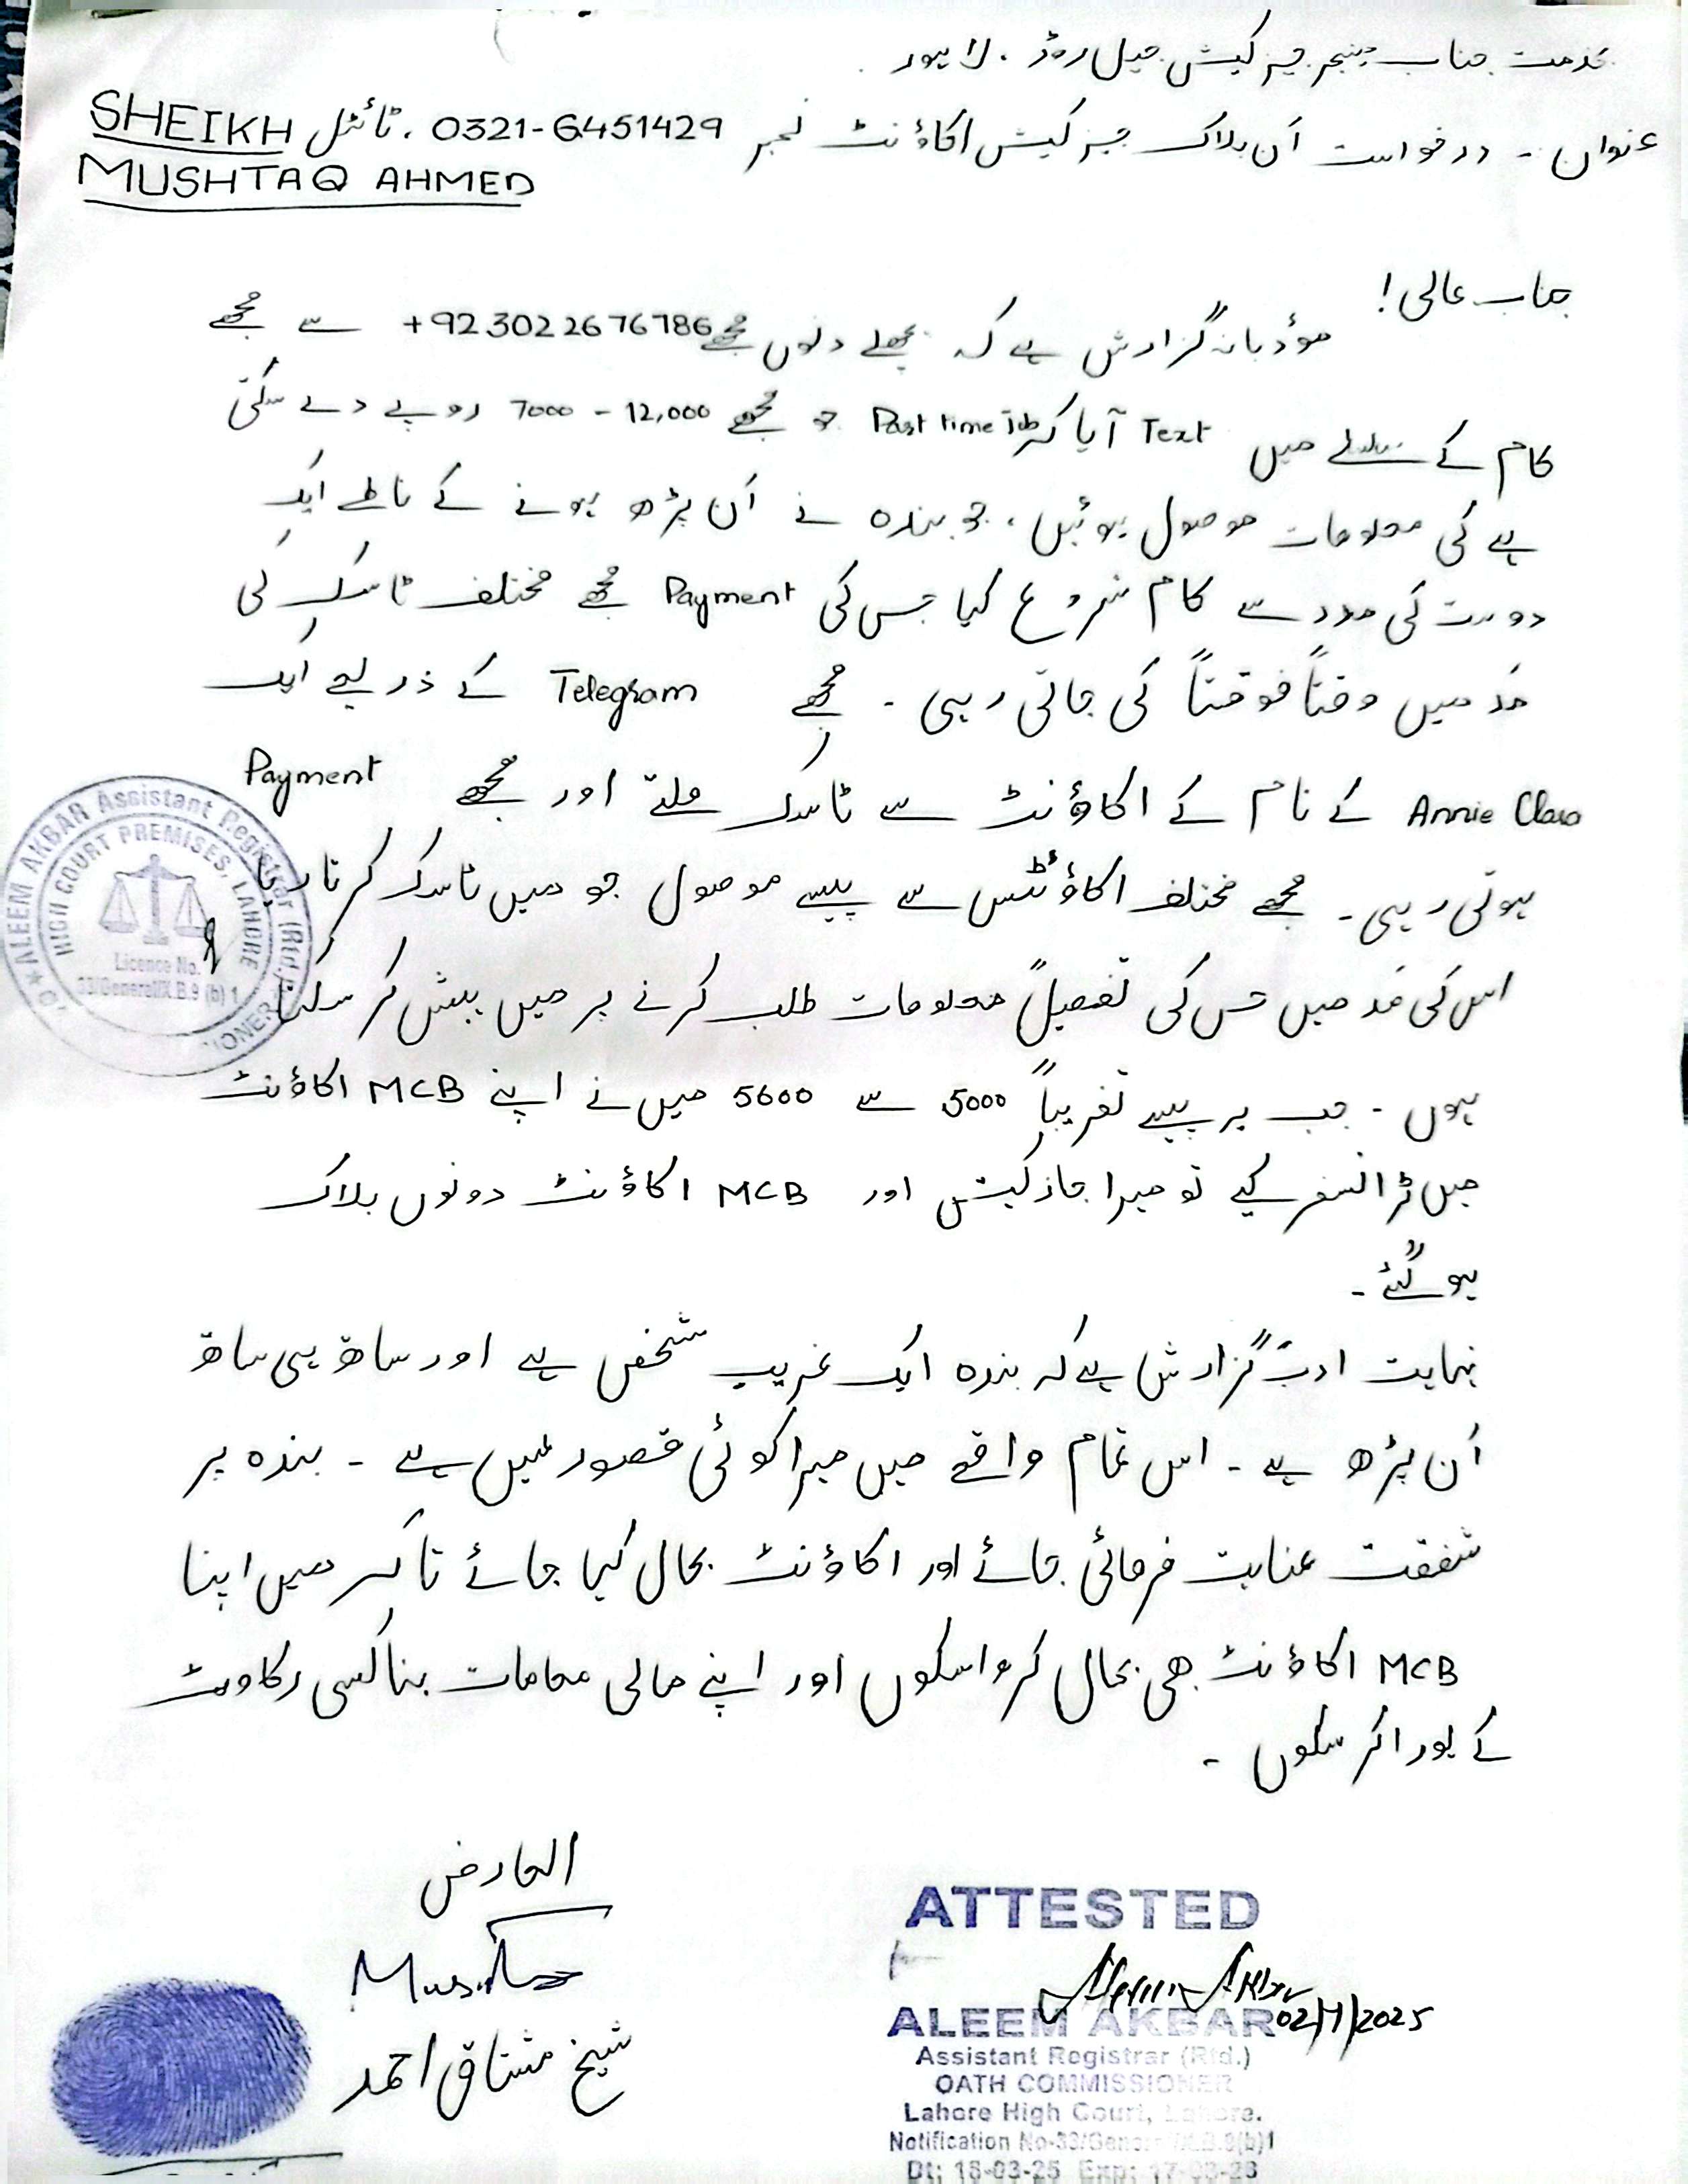 بخدمت جناب مینجر جیز کیش جیل روڈ، لاہور.
عنوان - درخواست اَن بلاک جیز کیش اکاؤنٹ نمبر 0321-6451429 ، ٹائٹل SHEIKH
MUSHTAQ AHMED
جناب عالی!
مؤدبانہ گزارش ہے کہ پچھلے دنوں مجھے +923022676786 سے مجھے
کام کے سلسلے میں Text آیا کہ Part time Job جو مجھے 7000 - 12,000 روپے دے سکتی
ہے کی معلومات موصول ہوئیں، جو بندہ نے اَن پڑھ ہونے کے ناطے ایک
دوست کی مدد سے کام شروع کیا جس کی Payment مجھے مختلف ٹاسک کی
مَد میں وقتاً فوقتاً کی جاتی رہی - مجھے Telegram کے ذریعے ایک
Annie Clara کے نام کے اکاؤنٹ سے ٹاسک ملتے اور مجھے Payment
ہوتی رہی - مجھے مختلف اکاؤنٹس سے پیسے موصول جو میں ٹاسک کرتا رہا
اس کی مَد میں جس کی تفصیلً معلومات طلب کرنے پر میں پیش کر سکتا
ہوں - جب یہ پیسے تقریباً 5000 سے 5600 میں نے اپنے MCB اکاؤنٹ
میں ٹرانسفر کیے تو میرا جاز کیش اور MCB اکاؤنٹ دونوں بلاک
ہو گئے -
نہایت ادب گزارش ہے کہ بندہ ایک غریب شخص ہے اور ساتھ ہی ساتھ
اَن پڑھ ہے - اس تمام واقعے میں میرا کوئی قصور نہیں ہے - بندہ پر
شفقت عنایت فرمائی جائے اور اکاؤنٹ بحال کیا جائے تاکہ میں اپنا
MCB اکاؤنٹ بھی بحال کروا سکوں اور اپنے مالی معاملات بنا کسی رکاوٹ
کے پورا کر سکوں -
العارض
شیخ مشتاق احمد
ALEEM AKBAR Assistant Registrar (Rtd.)
HIGH COURT PREMISES, LAHORE
Licence No.
33/General/X.B.9 (b) 1
ATTESTED
Aleem Akbar
02/7/2025
ALEEM AKBAR
Assistant Registrar (Rtd.)
OATH COMMISSIONER
Lahore High Court, Lahore.
Notification No-33/General/X.B.9(b)1
Dt: 18-03-25 Exp: 17-03-28